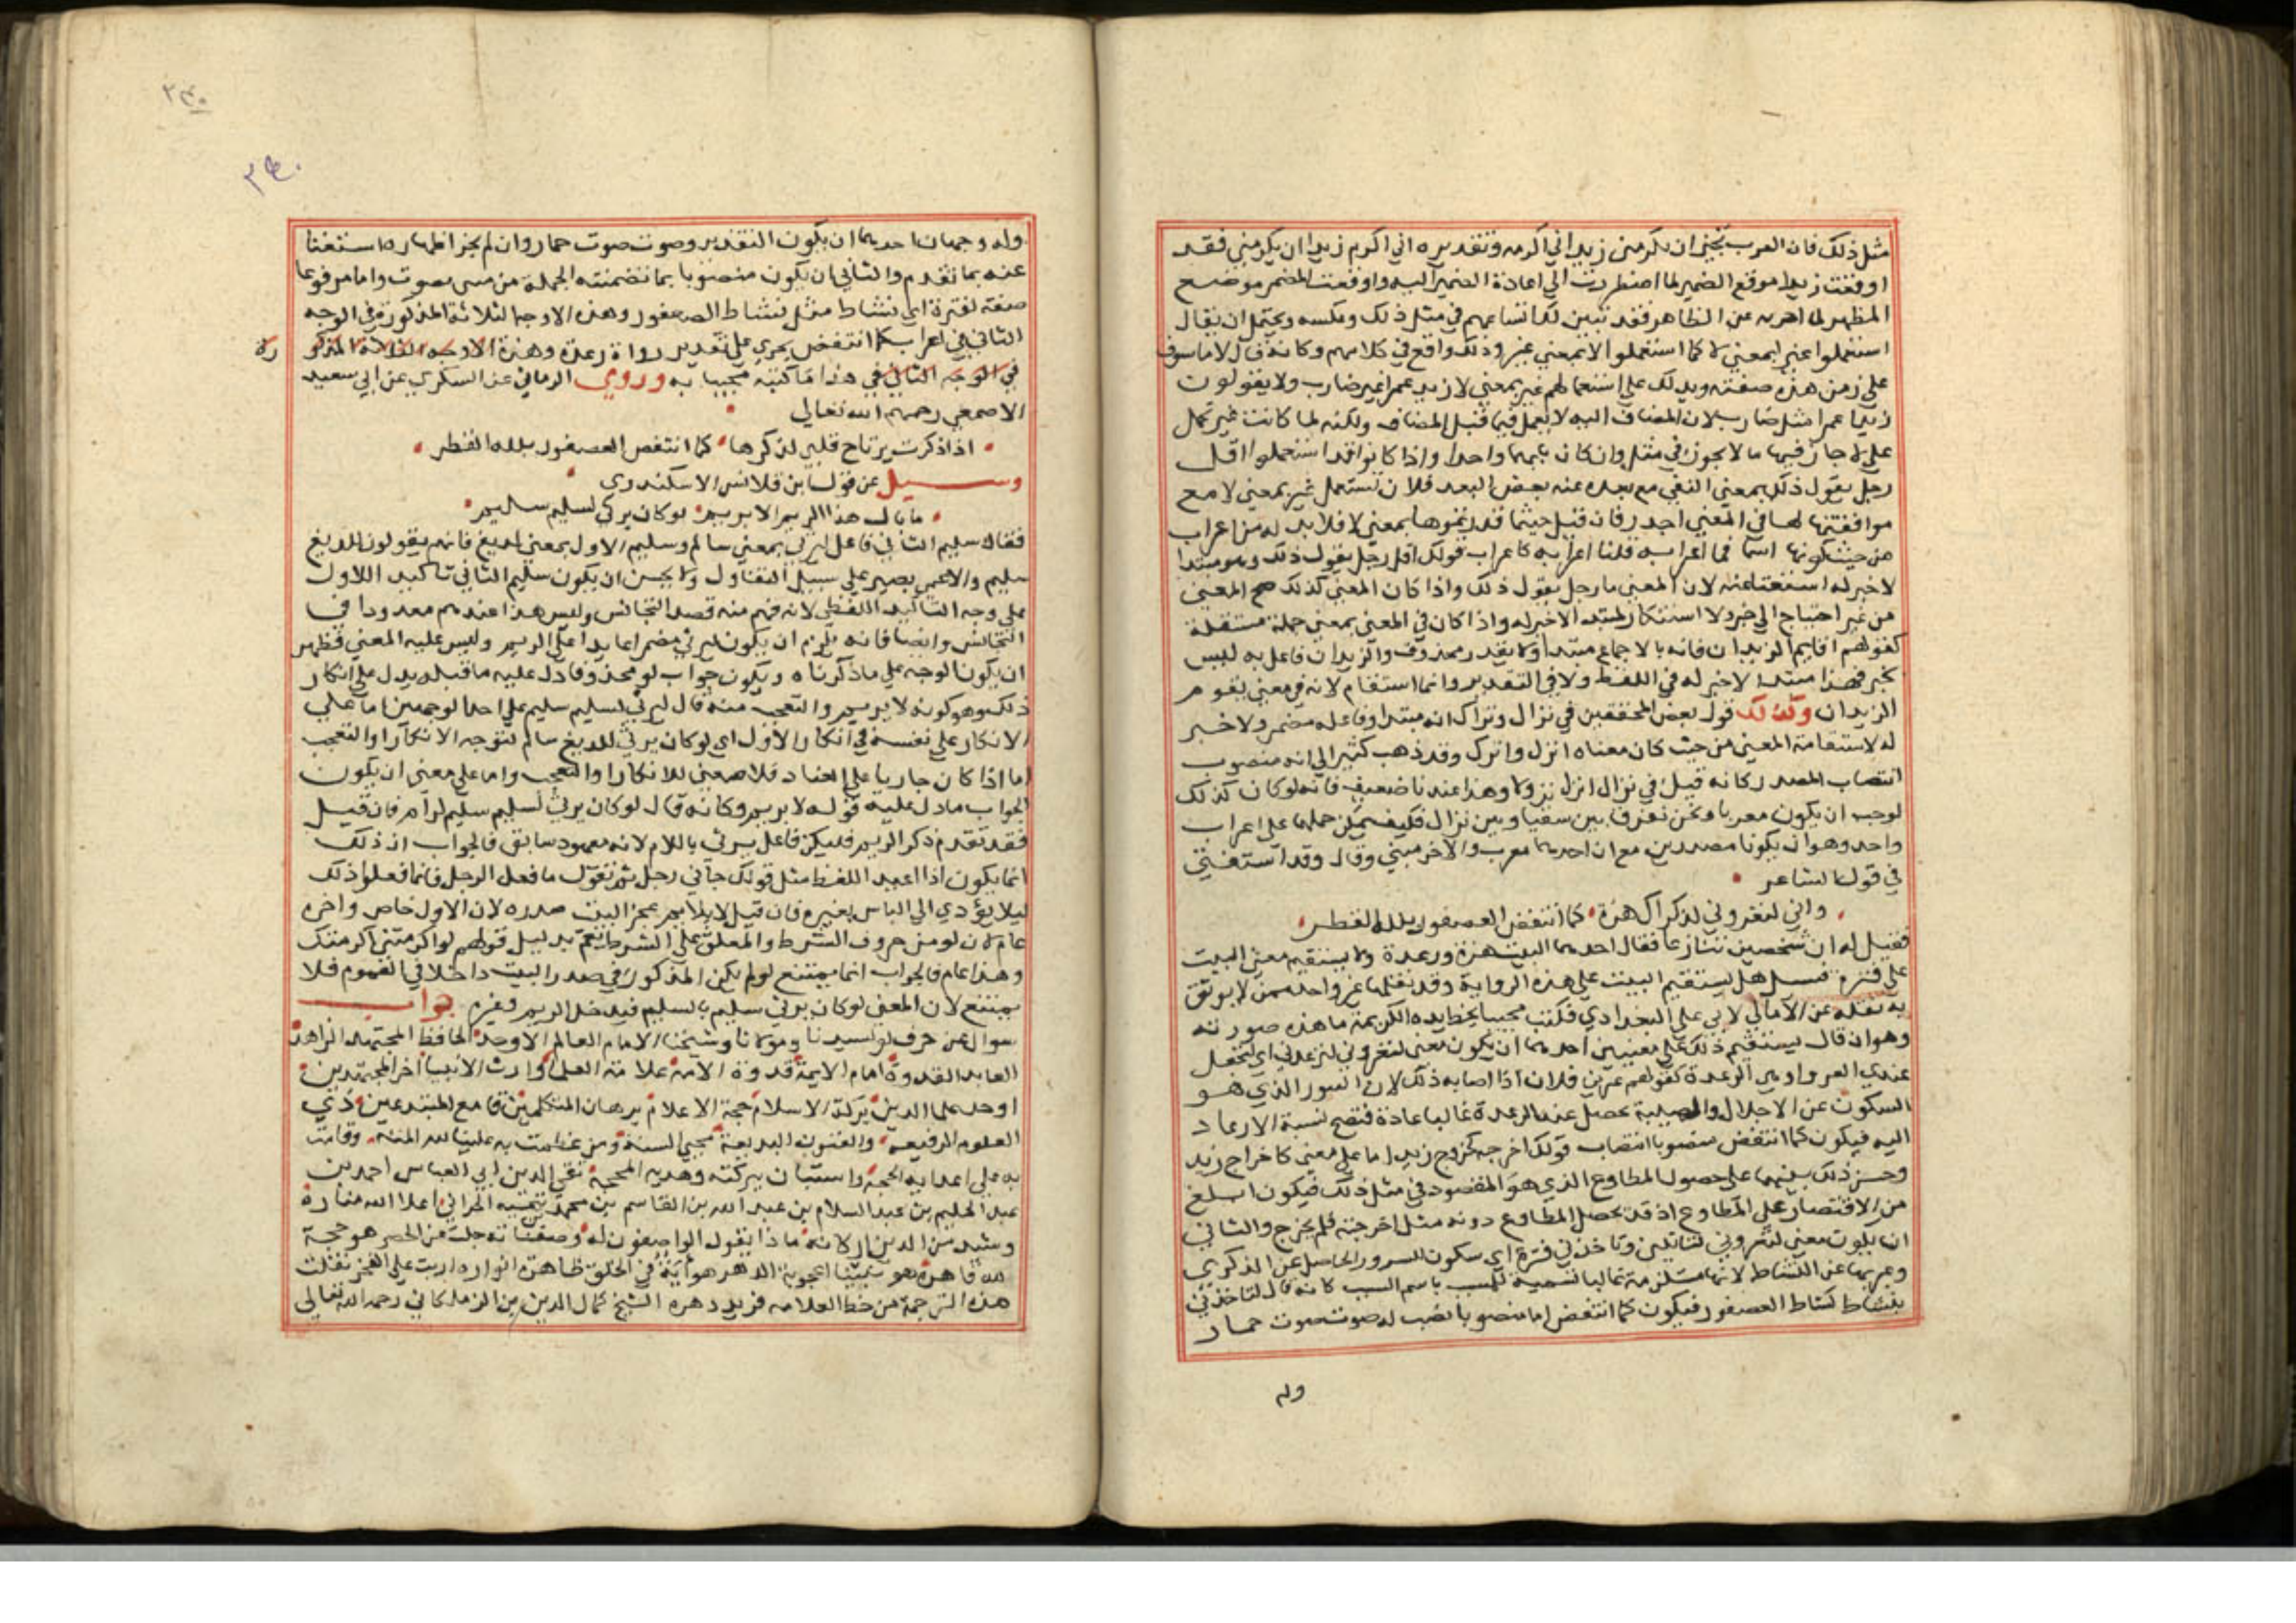 مثل ذلك فان العرب تجيز ان يكرمني زيد اني اكرمه وتقديره اني اكرم زيدا ان يكرمني فقد
اوقعت زيدا موقع الضمير لما اضطررت الي اعادة الضمير اليه واوقعت المضمر موضع
المظهر لما اخر به عن الظاهر فقد تبين لك اتساعهم في مثل ذلك وعكسه ويحتمل ان يقال
استعملوا غير بمعني لا كما استعملوا الا بمعني غير وذلك واقع في كلامهم وكانه قال لا ماسوف
علي زمن هذه صفته ويدلك علي استعمالهم غير بمعني لا زيد عمرا غير ضارب ولا يقولون
زيدا عمرا مثل ضارب لان المضاف اليه لا يعمل فيما قبل المضاف ولكنه لما كانت غير تحمل
علي لا جاز فيها ما لا يجوز في مثل وان كان بابهما واحدا واذا كانوا قد استعملوا اقل
رجل يقول ذلك بمعني النفي مع بعده عنه بعض البعد فلان تستعمل غير بمعني لا مع
موافقتها لها في المعني اجدر فان قيل حيثما قدرتموها بمعني لا فلا بد له من اعراب
من حيث كونها اسما فما اعرابه قلنا اعرابه كاعراب قولك اقل رجل يقول ذلك وهو مبتدا
لا خبر له استغناعنه لان المعني ما رجل يقول ذلك واذا كان المعني كذلك صح المعني
من غير احتياج الي خبر ولا استنكار لمبتدا لا خبر له واذا كان في المعني بمعني جملة مستقلة
كقولهم اقايم الزيدان فانه بالاجماع مبتدا ولا يقدر محذوف والزيدان فاعل به ليس
بخبر فهذا مبتدا لا خبر له في اللفظ ولا في التقدير وانما استقام لانه في معني يقوم
الزيدان وكذلك قول بعض المحققين في نزال وتراك انه مبتدا وفاعله مضمر ولا خبر
له لاستقامة المعني من حيث كان معناه انزل واترك وقد ذهب كثير الي انه منصوب
انتصاب المصدر كانه قيل في نزال انزل نزولا وهذا عندنا ضعيف فانه لو كان كذلك
لوجب ان يكون معربا ونحن نفرق بين سقيا وبين نزال فكيف يمكن حملهما علي اعراب
واحد وهو ان يكونا مصدرين مع ان احدهما معرب والاخر مبني وقال وقد استفتي
في قول الشاعر
واني لتعروني لذكراك هزة كما انتفض العصفور بلله القطر
فقيل له ان شخصين تنازعا فقال احدهما البيت هزة ورعدة ولا يستقيم معني البيت
علي فترة فسئل هل يستقيم البيت علي هذه الرواية وقد نقلها غير واحد ممن لا يوثق
به نقله عن الامالي لابي علي البغدادي فكتب مجيبا بخط يده الكريمة ما هذه صورته
وهو ان قال يستقيم ذلك علي معنيين احدهما ان يكون معني لتعروني لترعدني اي تجعل
عندي العروا وهي الرعدة كقولهم عري فلان اذا اصابه ذلك لان الفتور الذي هو
السكون عن الاجلال والهيبة يحصل عنه الرعدة غالبا عادة فتصح نسبة الارعاد
اليه فيكون كما انتفض منصوبا انتصاب قولك اخرجه كخروج زيد اما علي معني كاخراج زيد
وحسن ذلك بينهما علي حصول المطاوع الذي هو المقصود في مثل ذلك فيكون ابلغ
من الاقتصار علي المطاوع اذ قد يحصل المطاوع دونه مثل اخرجته فلم يخرج والثاني
ان يكون معني لتعروني لتاتيني وتاخذني فترة اي سكون للسرور الحاصل عن الذكري
وعبر بها عن النشاط لانها مستلزمة غالبا تسمية للمسبب باسم السبب كانه قال لتاخذني
بنشاط كنشاط العصفور فيكون كما انتفض اما منصوبا نصب له صوت صوت حمار
وله
وله وجهان احدهما ان يكون التقدير وصوت صوت حمار وان لم يجز اظهاره استغنا
عنه بما تقدم والثاني ان يكون منصوبا بما تضمنته الجملة من معني يصوت واما مرفوعا
صفة لفترة اي نشاط مثل نشاط العصفور وهذه الاوجه الثلاثة المذكورة في الوجه
الثاني في اعراب كما انتفض يجري علي تقدير رواة رعدة وهذه الاوجه الثلاثة المذكو ره
في الوجه الثاني في هذا ما كتبته مجيبا به وروي الرماني عن السكري عن ابي سعيد
الاصمعي رحمهم الله تعالي
اذا ذكرت يرتاح قلبي لذكرها كما انتفض العصفور بلله القطر
وسئل عن قول ابن قلانس الاسكندري
ما بال هذا الريم الا يريم لو كان يرثي لسليم سليم
فقال سليم الثاني فاعل يرثي بمعني سالم وسليم الاول بمعني لديغ فانهم يقولون للديغ
سليم وللاعمي بصير علي سبيل التفاول ولا يحسن ان يكون سليم الثاني تاكيد اللاول
علي وجه التاكيد اللفظي لانه فهم منه قصد التجانس وليس هذا عندهم معدودا في
التجانس وايضا فانه يلزم ان يكون يرثي مضمرا عايدا علي الريم وليس عليه المعني فظهر
ان يكون الوجه علي ما ذكرناه ويكون جواب لو محذوفا دل عليه ما قبله يدل علي انكار
ذلك وهو كونه لا يريم والتعجب منه قال يرثي لسليم سليم علي احد الوجهين اما علي
الانكار علي نفسه في انكار الاول اي لو كان يرثي للديغ سالم لتوجه الانكار والتعجب
اما اذا كان جاريا علي المعتاد فلا معني للانكار والتعجب واما علي معني ان يكون
الجواب ما دل عليه قوله لا يريم وكانه قال لو كان يرثي لسليم سليم لرام فان قيل
فقد تقدم ذكر الريم فليكن فاعل يرثي باللام لانه معهود سابق فالجواب ان ذلك
انما يكون اذا اعيد اللفظ مثل قولك جآني رجل ثم تقول ما فعل الرجل فانما فعلوا ذلك
ليلا يؤدي الي الباس بغيره فان قيل لا يلايم عجز البيت صدره لان الاول خاص واخره
عام لان لو من حروف الشرط والمعلق علي الشرط يعم بدليل قولهم لو اكرمتني اكرمتك
وهذا عام فالجواب انما يمتنع لو لم يكن المذكور في صدر البيت داخلا في العموم فلا
يمتنع لان المعني لو كان يرثي سليم بالسليم فيدخل الريم وغيره جواب
سوال عن حرف لو لسيدنا ومولانا وشيخنا الامام العالم الاوحد الحافظ المجتهد الزاهد
العابد القدوة امام الايمة قدوة الامة علامة العلما وارث الانبيا اخر المجتهدين
اوحد علما الدين بركة الاسلام حجة الاعلام برهان المتكلمين قامع المبتدعين ذي
العلوم الرفيعة والفنون البديعة محيي السنة ومن عظمت به علينا لله المنة وقامت
به علي اعدايه الحجة واستبان ببركته وهديه المحجة تقي الدين ابي العباس احمد بن
عبد الحليم بن عبد السلام بن عبد الله بن القاسم بن محمد بن تيمية الحراني اعلا الله مناره
وشيد من الدين اركانه ماذا يقول الواصفون له وصفاته جلت عن الحصر هو حجة
لله قاهرة هو بيننا اعجوبة الدهر هو آية في الخلق ظاهرة انواره اربت علي الفجر نقلت
هذه الترجمة من خط العلامه فريد دهره الشيخ كمال الدين بن الزملكاني رحمه الله تعالي